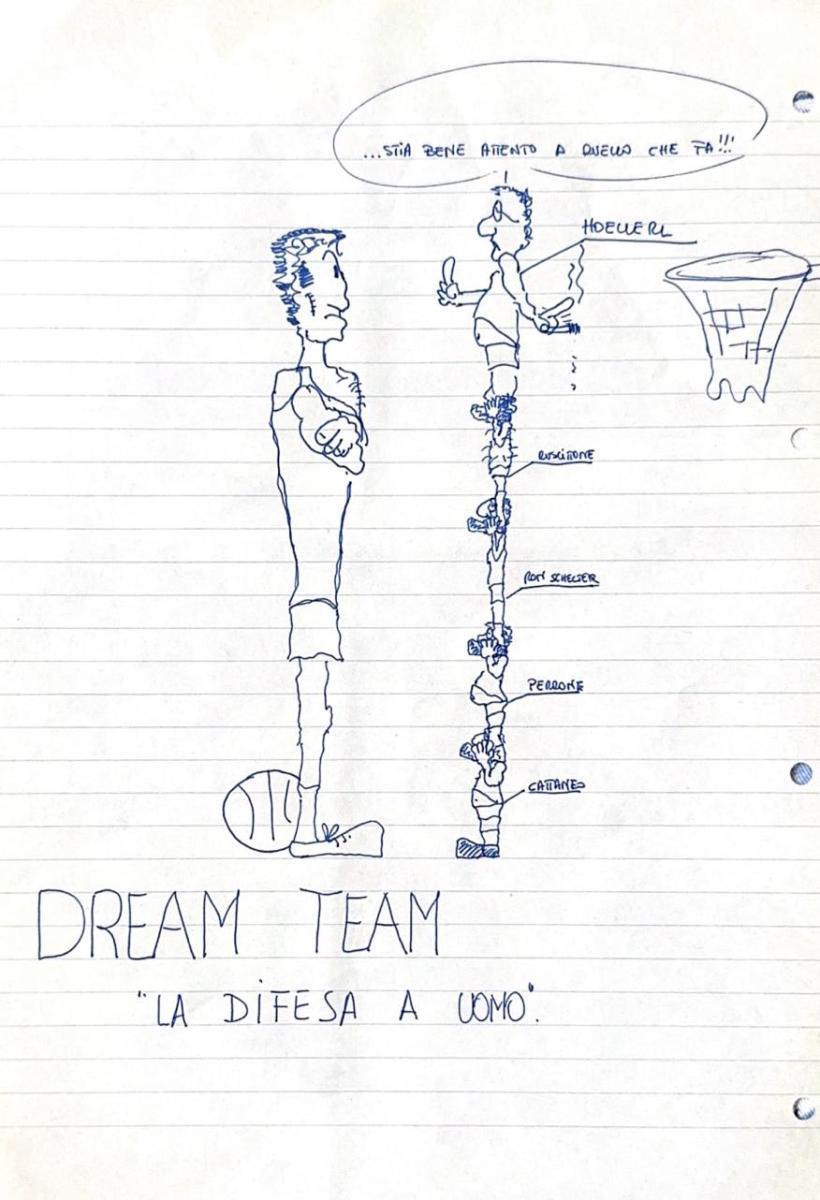 ...STIA BENE ATTENTO A QUELLO CHE FA!!!
HOELLERL
RUSCITTONE
RON SCHELSER
PERRONE
CATTANEO
DREAM TEAM
"LA DIFESA A UOMO".